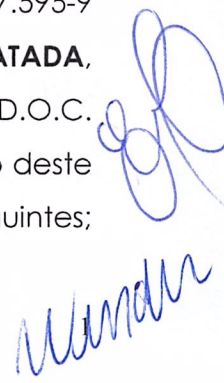 7.595-9
ATADA,
D.O.C.
o deste
uintes;